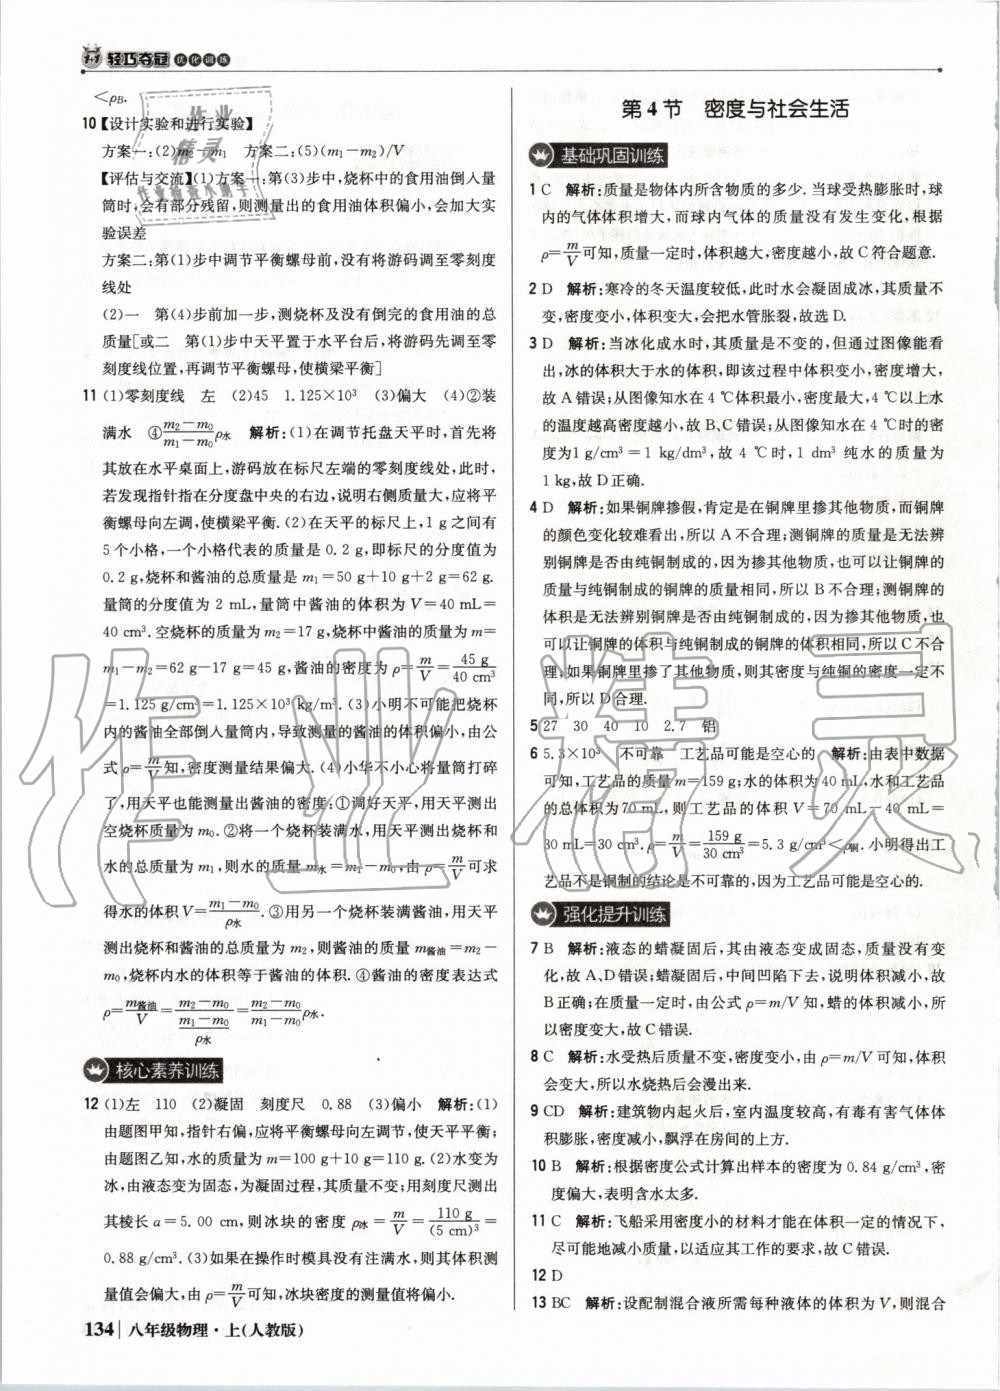 1+1 轻巧夺冠 优化训练
<ρB.
10【设计实验和进行实验】
方案一:(2)m2－m1　方案二:(5)(m1－m2)/V
【评估与交流】(1)方案一:第(3)步中,烧杯中的食用油倒入量
筒时,会有部分残留,则测量出的食用油体积偏小,会加大实
验误差
方案二:第(1)步中调节平衡螺母前,没有将游码调至零刻度
线处
(2)一　第(4)步前加一步,测烧杯及没有倒完的食用油的总
质量[或二　第(1)步中天平置于水平台后,将游码先调至零
刻度线位置,再调节平衡螺母,使横梁平衡]
11 (1)零刻度线　左　(2)45　1.125×10³　(3)偏大　(4)②装
满水　④(m2－m0)/(m1－m0)ρ水　解析:(1)在调节托盘天平时,首先将
其放在水平桌面上,游码放在标尺左端的零刻度线处,此时,
若发现指针指在分度盘中央的右边,说明右侧质量大,应将平
衡螺母向左调,使横梁平衡.(2)在天平的标尺上,1 g之间有
5个小格,一个小格代表的质量是0.2 g,即标尺的分度值为
0.2 g,烧杯和酱油的总质量是m1＝50 g＋10 g＋2 g＝62 g.
量筒的分度值为2 mL,量筒中酱油的体积为V＝40 mL＝
40 cm³.空烧杯的质量为m2＝17 g,烧杯中酱油的质量为m＝
m1－m2＝62 g－17 g＝45 g,酱油的密度为ρ＝m/V＝45 g/40 cm³
＝1.125 g/cm³＝1.125×10³ kg/m³.(3)小明不可能把烧杯
内的酱油全部倒入量筒内,导致测量的酱油的体积偏小,由公
式ρ＝m/V知,密度测量结果偏大.(4)小华不小心将量筒打碎
了,用天平也能测量出酱油的密度:①调好天平,用天平测出
空烧杯质量为m0.②将一个烧杯装满水,用天平测出烧杯和
水的总质量为m1,则水的质量m水＝m1－m0,由ρ＝m/V可求
得水的体积V＝(m1－m0)/ρ水.③用另一个烧杯装满酱油,用天平
测出烧杯和酱油的总质量为m2,则酱油的质量m酱油＝m2－
m0,烧杯内水的体积等于酱油的体积.④酱油的密度表达式
ρ＝m酱油/V＝(m2－m0)/((m1－m0)/ρ水)＝(m2－m0)/(m1－m0)ρ水.
核心素养训练
12 (1)左　110　(2)凝固　刻度尺　0.88　(3)偏小　解析:(1)
由题图甲知,指针右偏,应将平衡螺母向左调节,使天平平衡;
由题图乙知,水的质量为m＝100 g＋10 g＝110 g.(2)水变为
冰,由液态变为固态,为凝固过程,其质量不变;用刻度尺测出
其棱长a＝5.00 cm,则冰块的密度ρ冰＝m/V＝110 g/(5 cm)³＝
0.88 g/cm³.(3)如果在操作时模具没有注满水,则其体积测
量值会偏大,由ρ＝m/V可知,冰块密度的测量值将偏小.
134 八年级物理·上(人教版)
第4节　密度与社会生活
基础巩固训练
1 C　解析:质量是物体内所含物质的多少.当球受热膨胀时,球
内的气体体积增大,而球内气体的质量没有发生变化,根据
ρ＝m/V可知,质量一定时,体积越大,密度越小,故C符合题意.
2 D　解析:寒冷的冬天温度较低,此时水会凝固成冰,其质量不
变,密度变小,体积变大,会把水管胀裂,故选D.
3 D　解析:当冰化成水时,其质量是不变的,但通过图像能看
出,冰的体积大于水的体积,即该过程中体积变小,密度增大,
故A错误;从图像知水在4 ℃体积最小,密度最大,4 ℃以上水
的温度越高密度越小,故B、C错误;从图像知水在4 ℃时的密
度为1 g/cm³＝1 kg/dm³,故4 ℃时,1 dm³纯水的质量为
1 kg,故D正确.
4 D　解析:如果铜牌掺假,肯定是在铜牌里掺其他物质,而铜牌
的颜色变化较难看出,所以A不合理;测铜牌的质量是无法辨
别铜牌是否由纯铜制成的,因为掺其他物质,也可以让铜牌的
质量与纯铜制成的铜牌的质量相同,所以B不合理;测铜牌的
体积是无法辨别铜牌是否由纯铜制成的,因为掺其他物质,也
可以让铜牌的体积与纯铜制成的铜牌的体积相同,所以C不合
理;如果铜牌里掺了其他物质,则其密度与纯铜的密度一定不
同,所以D合理.
5 27　30　40　10　2.7　铝
6 5.3×10³　不可靠　工艺品可能是空心的　解析:由表中数据
可知,工艺品的质量m＝159 g;水的体积为40 mL,水和工艺品
的总体积为70 mL,则工艺品的体积V＝70 mL－40 mL＝
30 mL＝30 cm³.ρ＝m/V＝159 g/30 cm³＝5.3 g/cm³<ρ铜.小明得出工
艺品不是铜制的结论是不可靠的,因为工艺品可能是空心的.
强化提升训练
7 B　解析:液态的蜡凝固后,其由液态变成固态,质量没有变
化,故A、D错误;蜡凝固后,中间凹陷下去,说明体积减小,故
B正确;在质量一定时,由公式ρ＝m/V知,蜡的体积减小,所
以密度变大,故C错误.
8 C　解析:水受热后质量不变,密度变小,由ρ＝m/V可知,体积
会变大,所以水烧热后会漫出来.
9 CD　解析:建筑物内起火后,室内温度较高,有毒有害气体体
积膨胀,密度减小,飘浮在房间的上方.
10 B　解析:根据密度公式计算出样本的密度为0.84 g/cm³,密
度偏大,表明含水太多.
11 C　解析:飞船采用密度小的材料才能在体积一定的情况下,
尽可能地减小质量,以适应其工作的要求,故C错误.
12 D
13 BC　解析:设配制混合液所需每种液体的体积为V,则混合
作业精灵
作业精灵